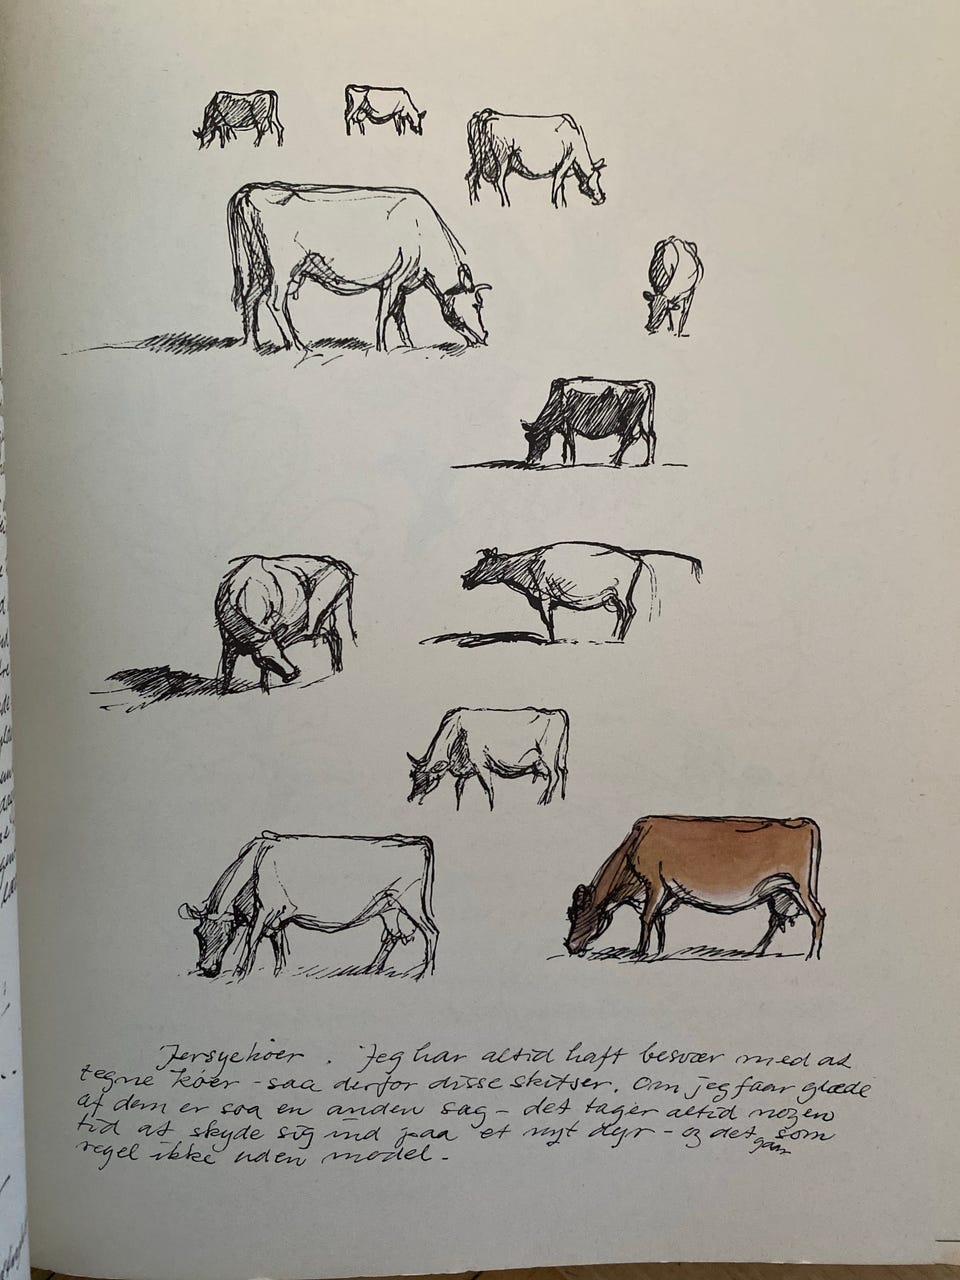 Jersyekøer. Jeg har altid haft besvær med at
tegne køer - saa derfor disse skitser. Om jeg faar glæde
af dem er saa en anden sag - det tager altid nogen
tid at skyde sig ind paa et nyt dyr - og det gaar som
regel ikke uden model.